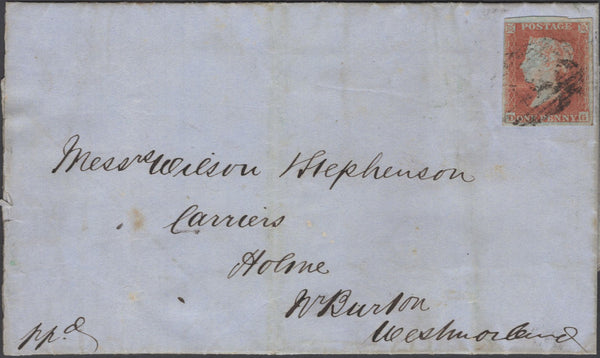 POSTAGE
ONE PENNY
Messrs Wilson Stephenson
Carriers
Holme
Nr Burton
Westmorland
ppd